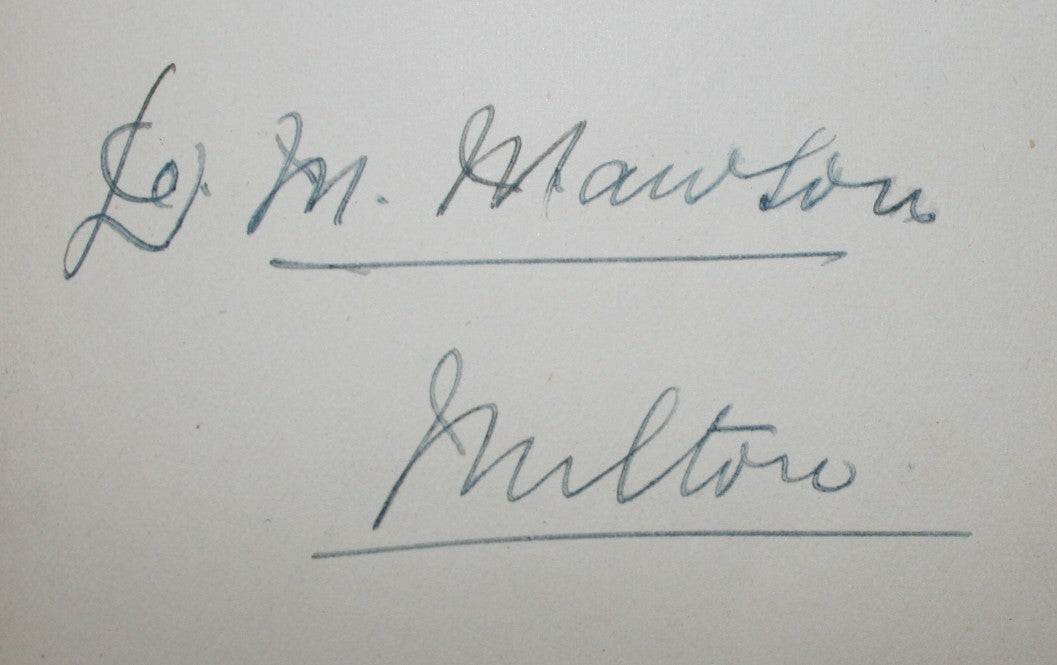 M. Mawson
Milton